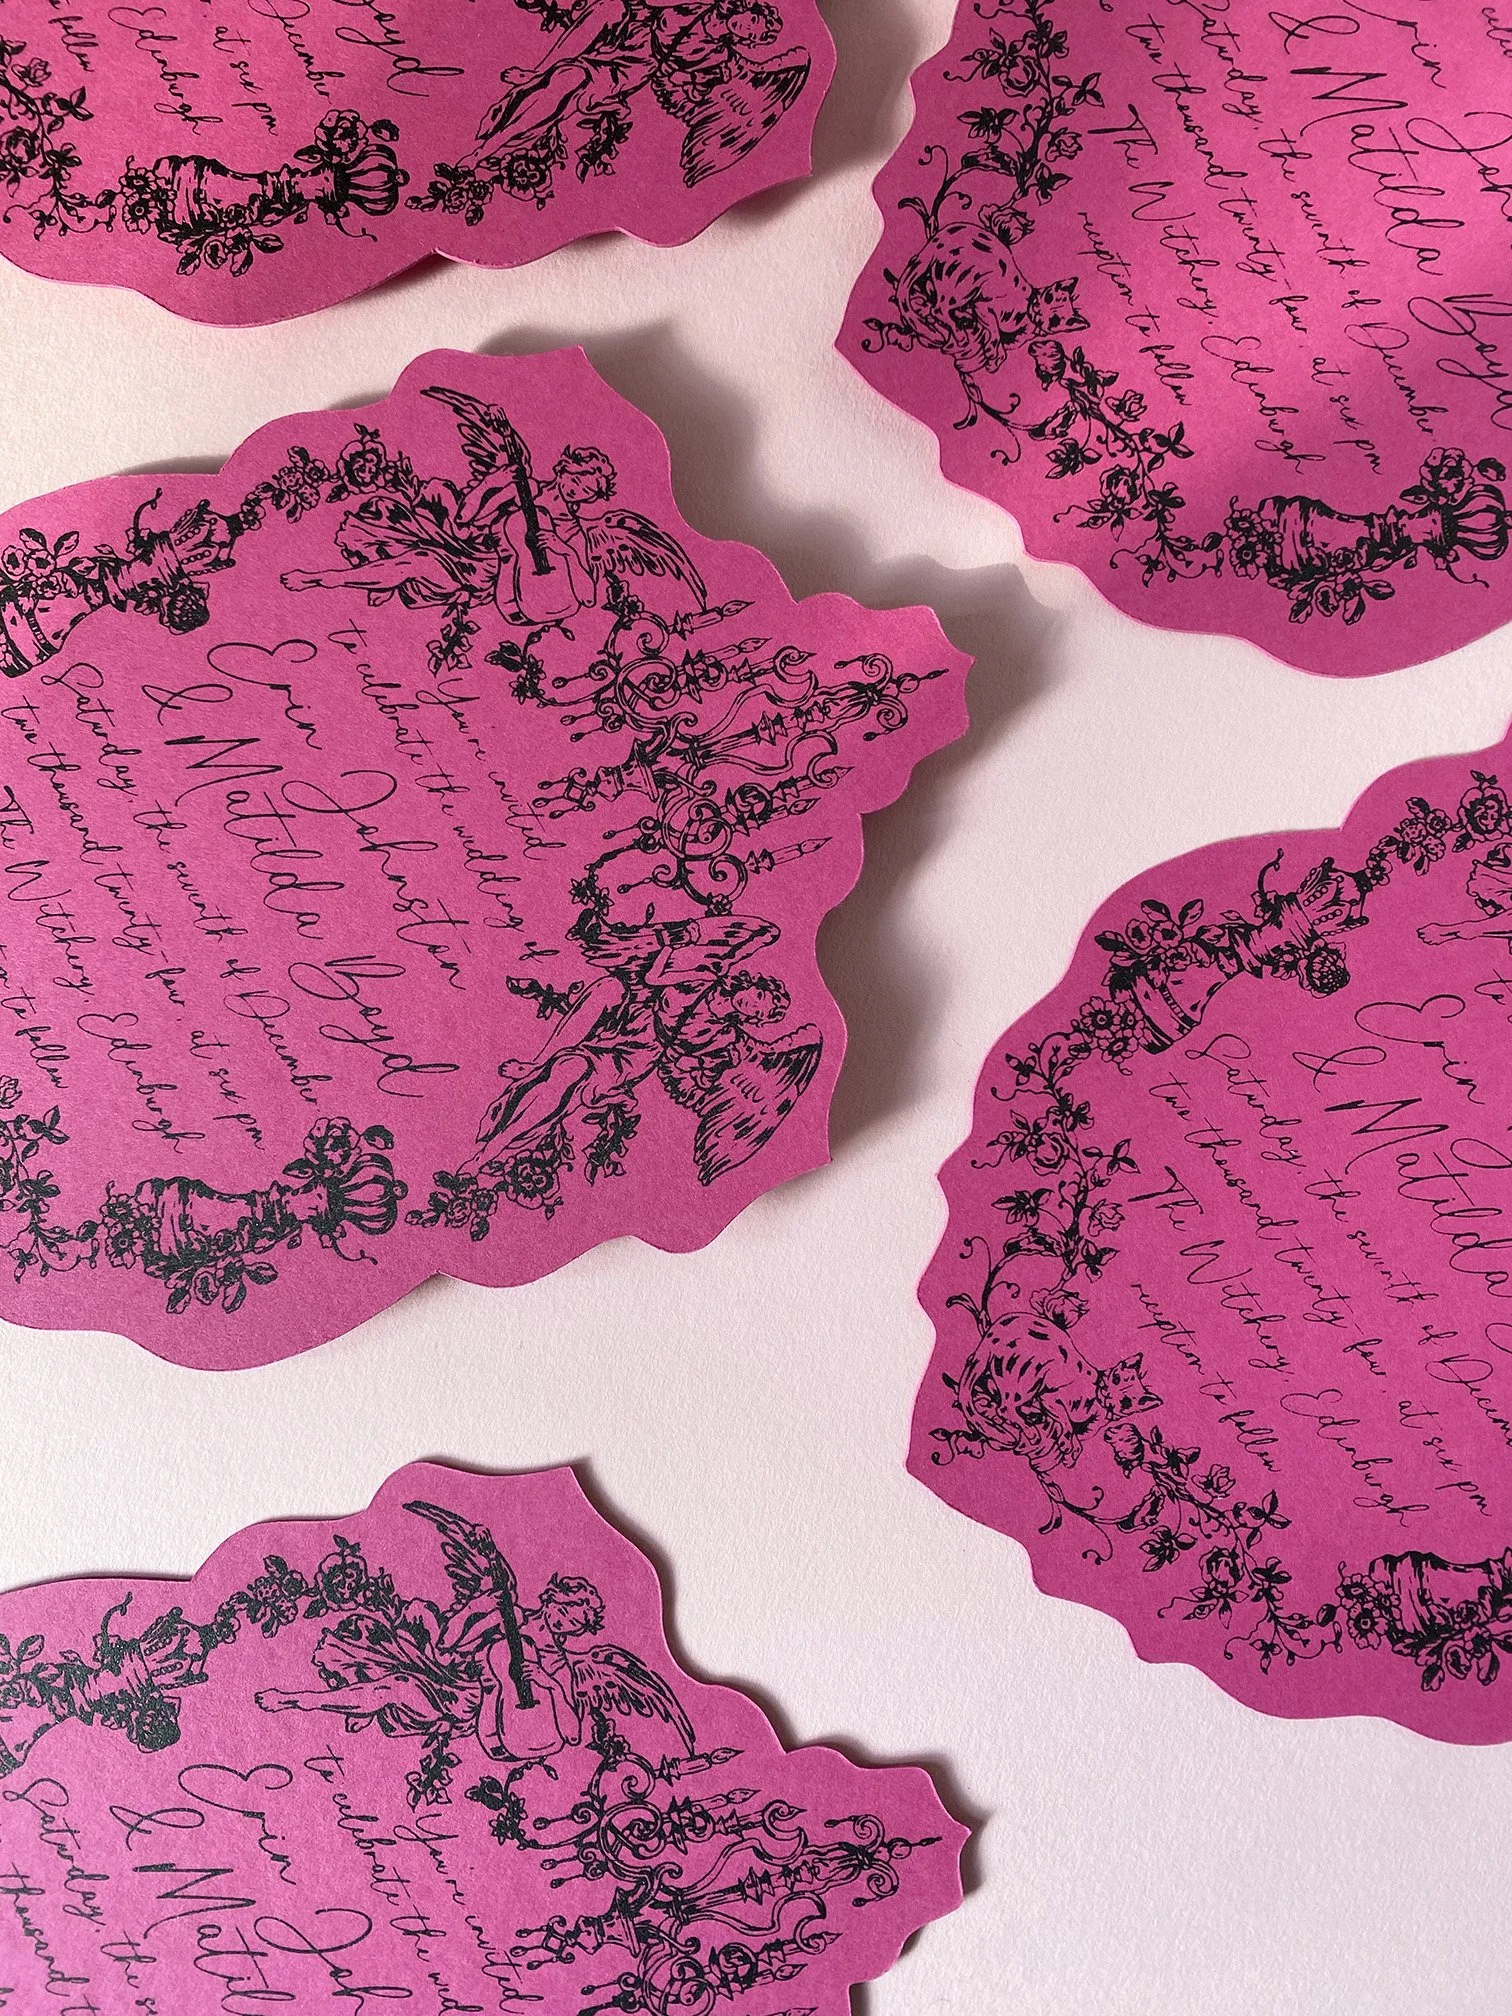 Boyd
December
at six pm
Edinburgh
to follow
Erin
& Matilda Boyd
Saturday, the seventh of December
two thousand twenty-four, at six pm
The Witchery, Edinburgh
reception to follow
You're invited
to celebrate the wedding of
Erin Johnston
& Matilda Boyd
Saturday, the seventh of December
two thousand twenty-four, at six pm
The Witchery, Edinburgh
to follow
Erin
& Matilda
Saturday, the seventh of
two thousand twenty-four, at six pm
The Witchery, Edinburgh
reception to follow
You're invited
to celebrate the
Erin
&
Saturday, the
thousand